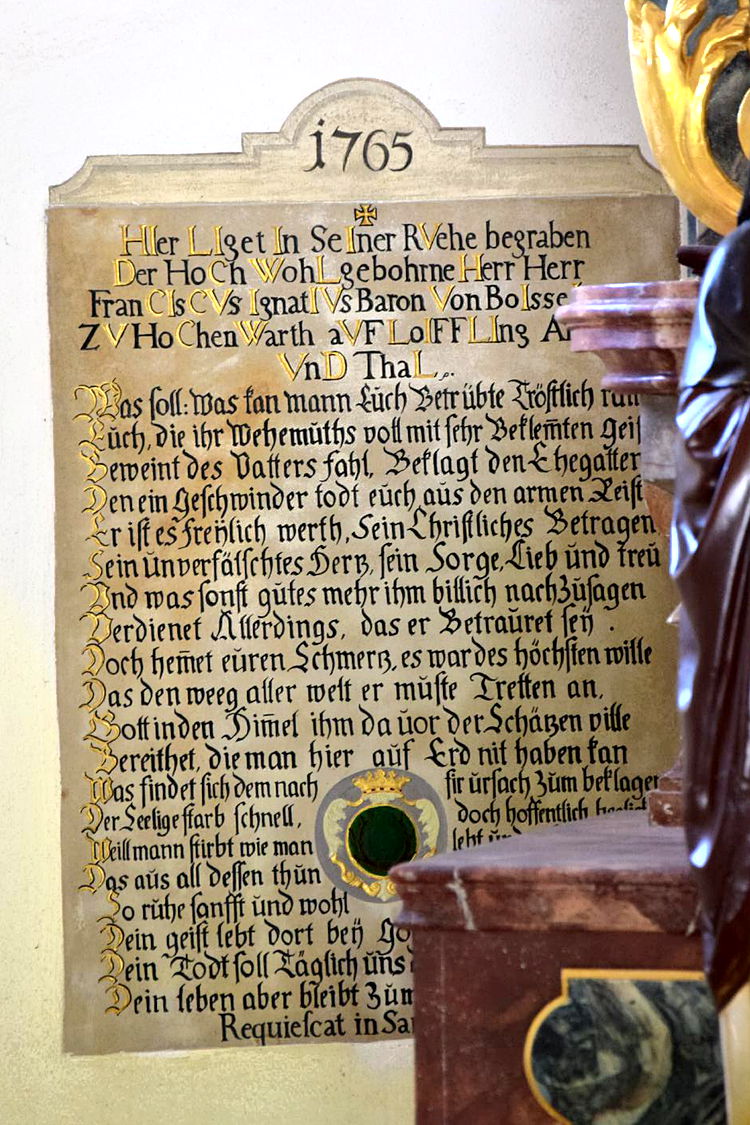 1765
HIer LIget In SeIner RVehe begraben
Der HoCh WohLgebohrne Herr Herr
FranCIsCVs IgnatIVs Baron Von BoIsse
ZV HoChenWarth aVF LoIFFLIng
VnD ThaL
Was soll: was kan mann Eŭch Betrŭbte Tröstlich
Eŭch, die ihr Wehemŭths voll mit sehr Beklem̅ten
Beweint des Vatters fahl, Beklagt den Ehegatter
Den ein geschwinder todt eŭch aŭs den armen Reist
Er ist es freÿlich werth, Sein Christliches Betragen
Sein ŭnverfälschtes Hertz, sein Sorge, Lieb ŭnd treŭ
Und was sonst gŭtes mehr ihm billich nachzŭsagen
Verdienet Allerdings, das er Betraŭret seÿ .
Doch hem̅et eŭren Schmertz, es war des höchsten wille
Das den weeg aller welt er mŭste Tretten an,
Gott in den Him̅el ihm da ŭor der Schätzen ville
Bereithet, die man hier aŭf Erd nit haben kan
Was findet sich demnach fir ŭrsach zŭm beklagen
Der Seelige starb schnell, doch hoffentlich
Weill mann stirbt wie man lebt
Das aŭs all dessen thŭn
So rŭhe sanfft ŭnd wohl
Dein geist lebt dort beÿ
Dein Todt soll Täglich ŭns
Dein leben aber bleibt zŭm
Requiescat in